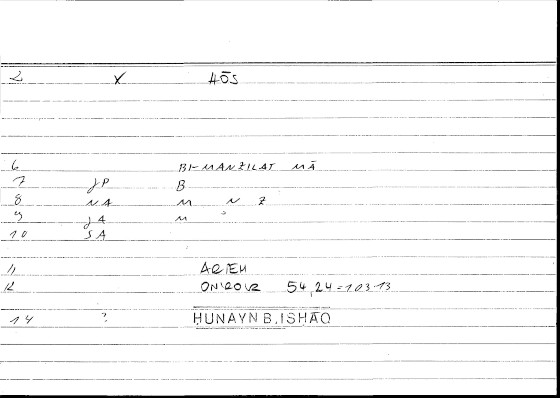 2 X HŌS
6 BI-MANZILAT MĀ
7 JP B
8 NA M N Z
9 JA M
10 SA
11 ARTEM
12 ONIROCR 54,24=103·13
14 ? ḤUNAYN B. ISḤĀQ